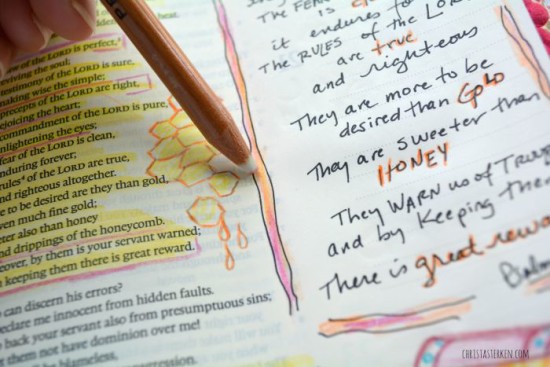 of the LORD is perfect,
reviving the soul;
testimony of the LORD is sure,
making wise the simple;
precepts of the LORD are right,
rejoicing the heart;
commandment of the LORD is pure,
enlightening the eyes;
fear of the LORD is clean,
enduring forever;
rules of the LORD are true,
and righteous altogether.
to be desired are they than gold,
even much fine gold;
sweeter also than honey
and drippings of the honeycomb.
Moreover, by them is your servant warned;
keeping them there is great reward.
can discern his errors?
Declare me innocent from hidden faults.
back your servant also from presumptuous sins;
let them not have dominion over me!
blameless,
THE FEAR
is
it endures to
THE RULES of the LORD
are true
and righteous
They are more to be
desired than GOLD
They are sweeter than
HONEY
They WARN us of
and by Keeping them
There is great reward
CHRISTASTERKEN.COM